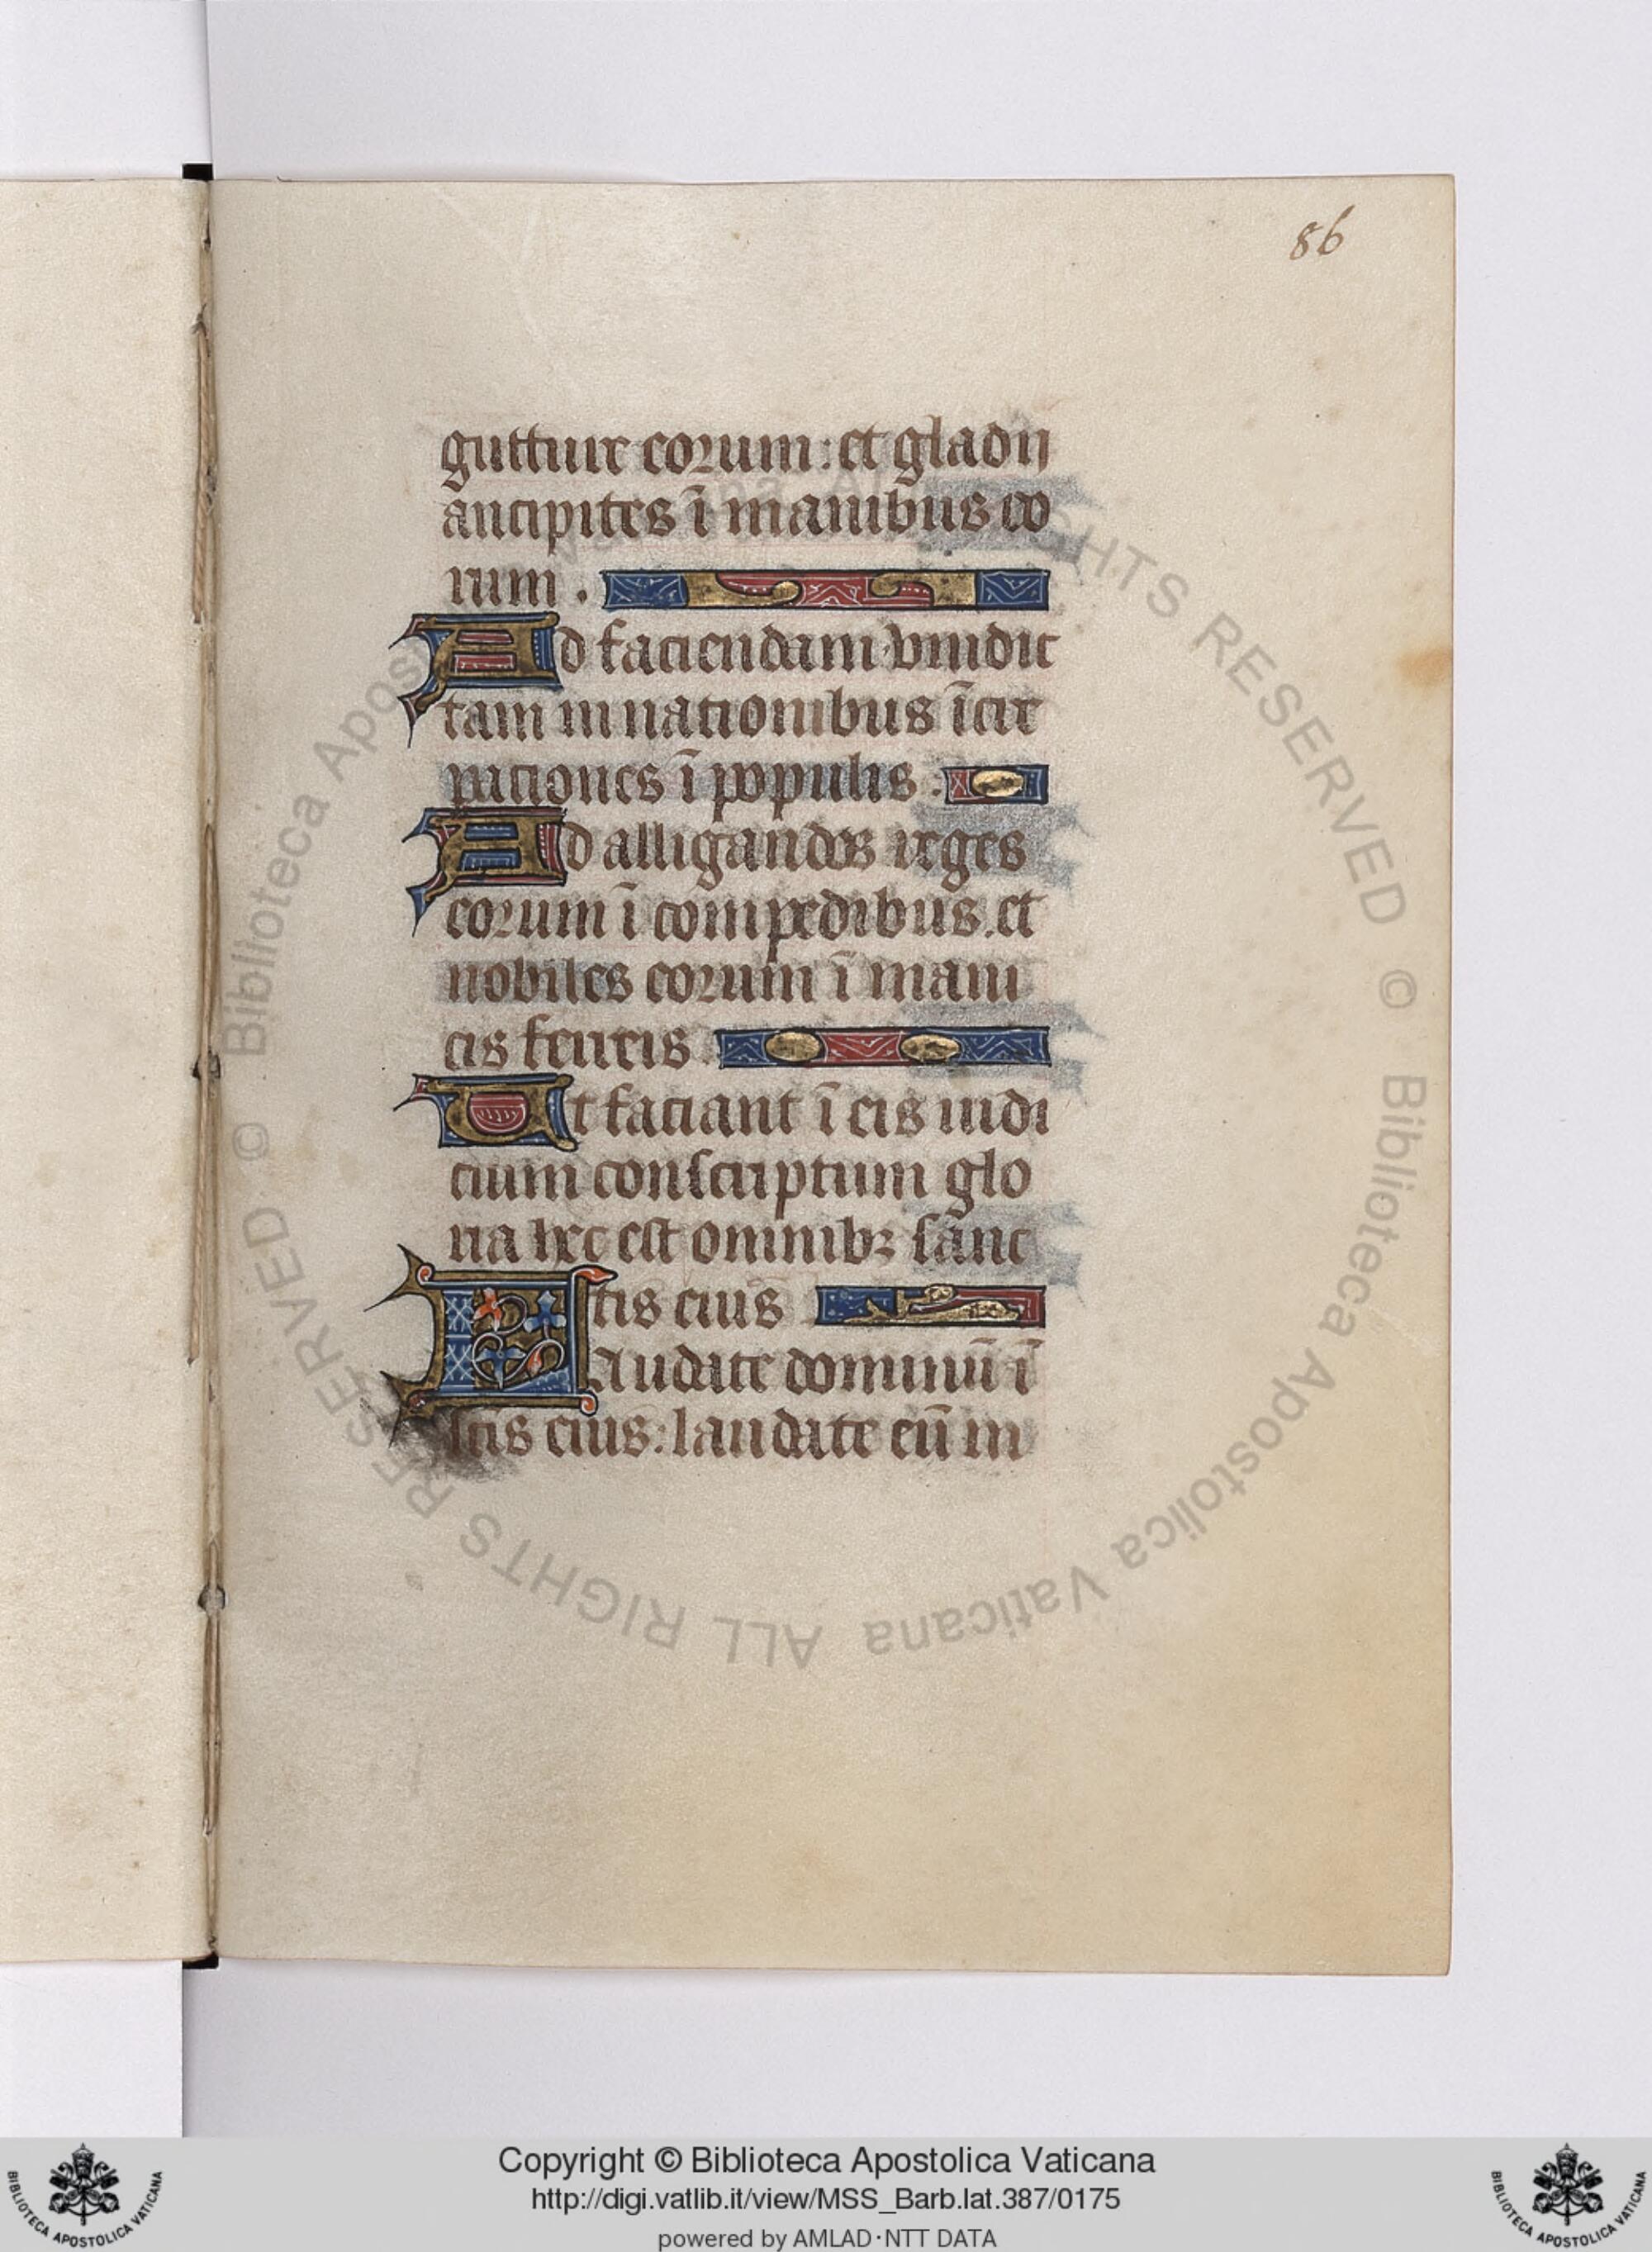 86
gutture eorum: et gladii
ancipites ī manibus eo
rum.
Ad faciendam vindic
tam in nationibus īcre
pationes ī populis.
Ad alligandos reges
eorum ī compedibus. et
nobiles eorum ī mani
cis ferreis.
Ut faciant ī eis iudi
cium conscriptum glo
ria hec est omnibꝫ sanc
tis eius
Laudate dominū ī
scīs eius: laudate eū in
© Biblioteca Apostolica Vaticana ALL RIGHTS RESERVED © Biblioteca Apostolica Vaticana ALL RIGHTS RESERVED
Copyright © Biblioteca Apostolica Vaticana
http://digi.vatlib.it/view/MSS_Barb.lat.387/0175
powered by AMLAD·NTT DATA
BIBLIOTECA APOSTOLICA VATICANA
BIBLIOTECA APOSTOLICA VATICANA